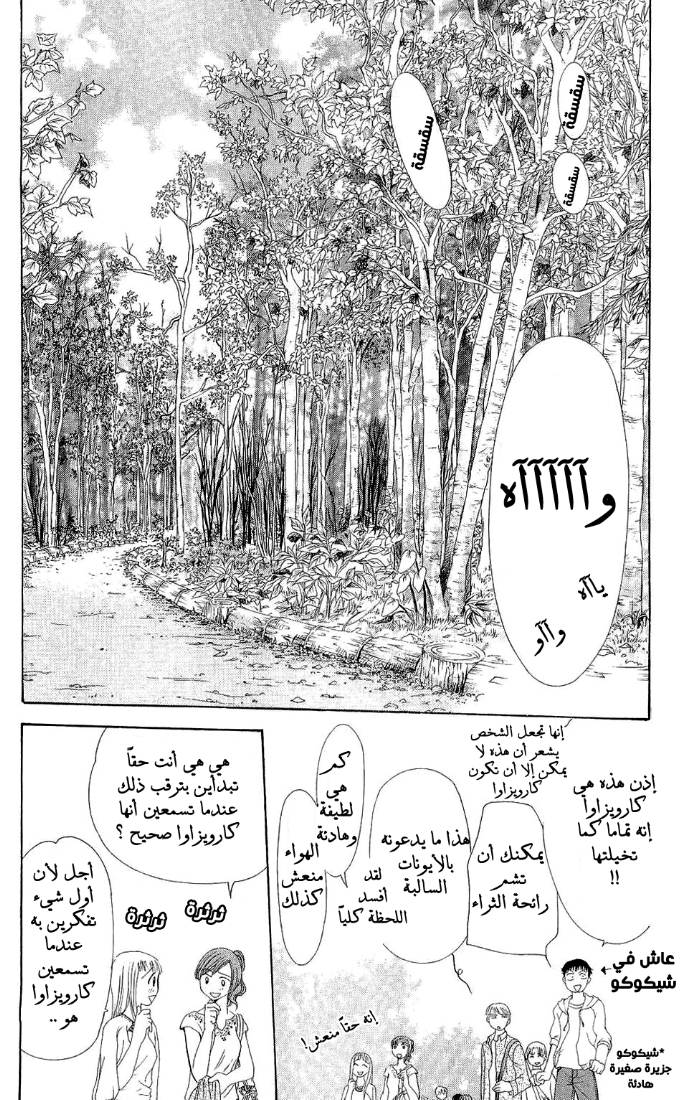 سقسقة
سقسقة
سقسقة
وآآآآآآه
ياآه
وآآو
إذن هذه هي
كارويزاوا
إنه تماما كما
تخيلتها
!!
إنها تجعل الشخص
يشعر أن هذه لا
يمكن إلا أن تكون
كارويزاوا
يمكنك أن
تشم
رائحة الثراء
هذا ما يدعونه
بالأيونات
السالبة
لقد
أفسد
اللحظة كلياً
كر
هي
لطيفة
وهادئة
الهواء
منعش
كذلك
عاش في
شيكوكو
*شيكوكو
جزيرة صغيرة
هادئة
إنه حقاً منعش!
هي هي أنت حقاً
تبدأين بترقب ذلك
عندما تسمعين أنها
كارويزاوا صحيح ؟
ثرثرة
ثرثرة
أجل لأن
أول شيء
تفكرين به
عندما
تسمعين
كارويزاوا
هو ..